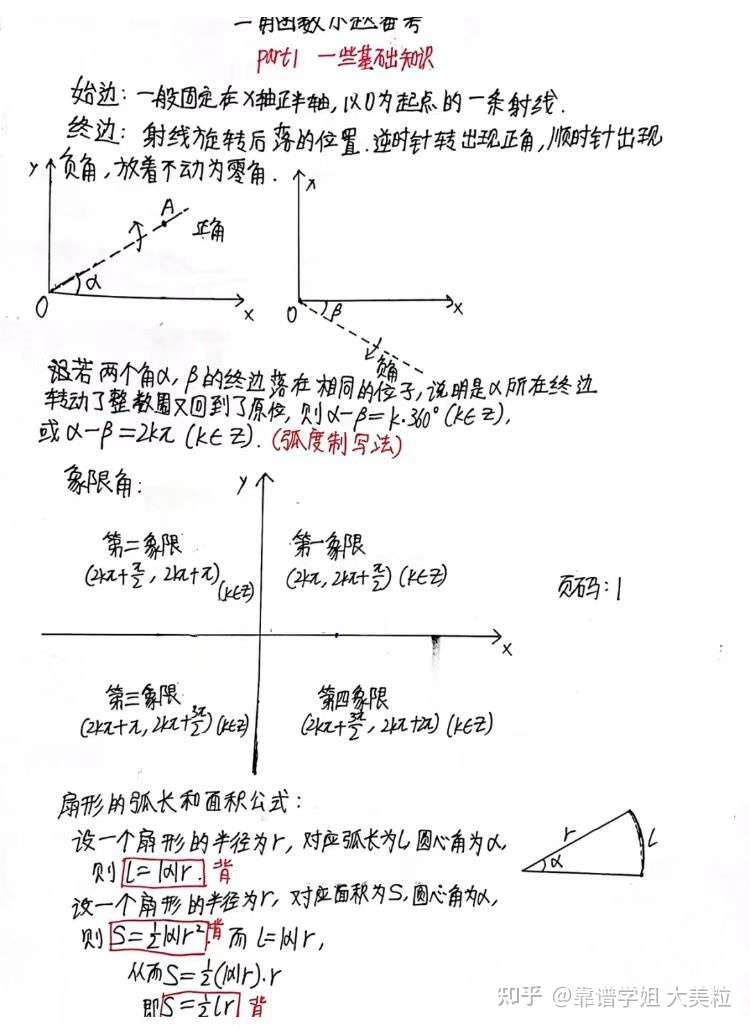 part1 一些基础知识
始边：一般固定在x轴正半轴，以O为起点的一条射线.
终边：射线旋转后落的位置.逆时针转出现正角，顺时针出现
负角，放着不动为零角.
y
A
正角
α
O
x
x
O
β
x
负角
设若两个角α，β的终边落在相同的位子，说明是α所在终边
转动了整数圈又回到了原位，则α-β=k·360°(k∈Z)，
或α-β=2kπ (k∈Z). (弧度制写法)
象限角：
y
第二象限
(2kπ+π/2, 2kπ+π) (k∈Z)
第一象限
(2kπ, 2kπ+π/2) (k∈Z)
页码：1
x
第三象限
(2kπ+π, 2kπ+3π/2) (k∈Z)
第四象限
(2kπ+3π/2, 2kπ+2π) (k∈Z)
扇形的弧长和面积公式：
设一个扇形的半径为r，对应弧长为l,圆心角为α,
则 l=|α|r. 背
r
l
α
设一个扇形的半径为r，对应面积为S,圆心角为α,
则 S=1/2|α|r² 背 而 l=|α|r,
从而S=1/2(|α|r)·r
即 S=1/2lr 背
知乎 @靠谱学姐 大美粒